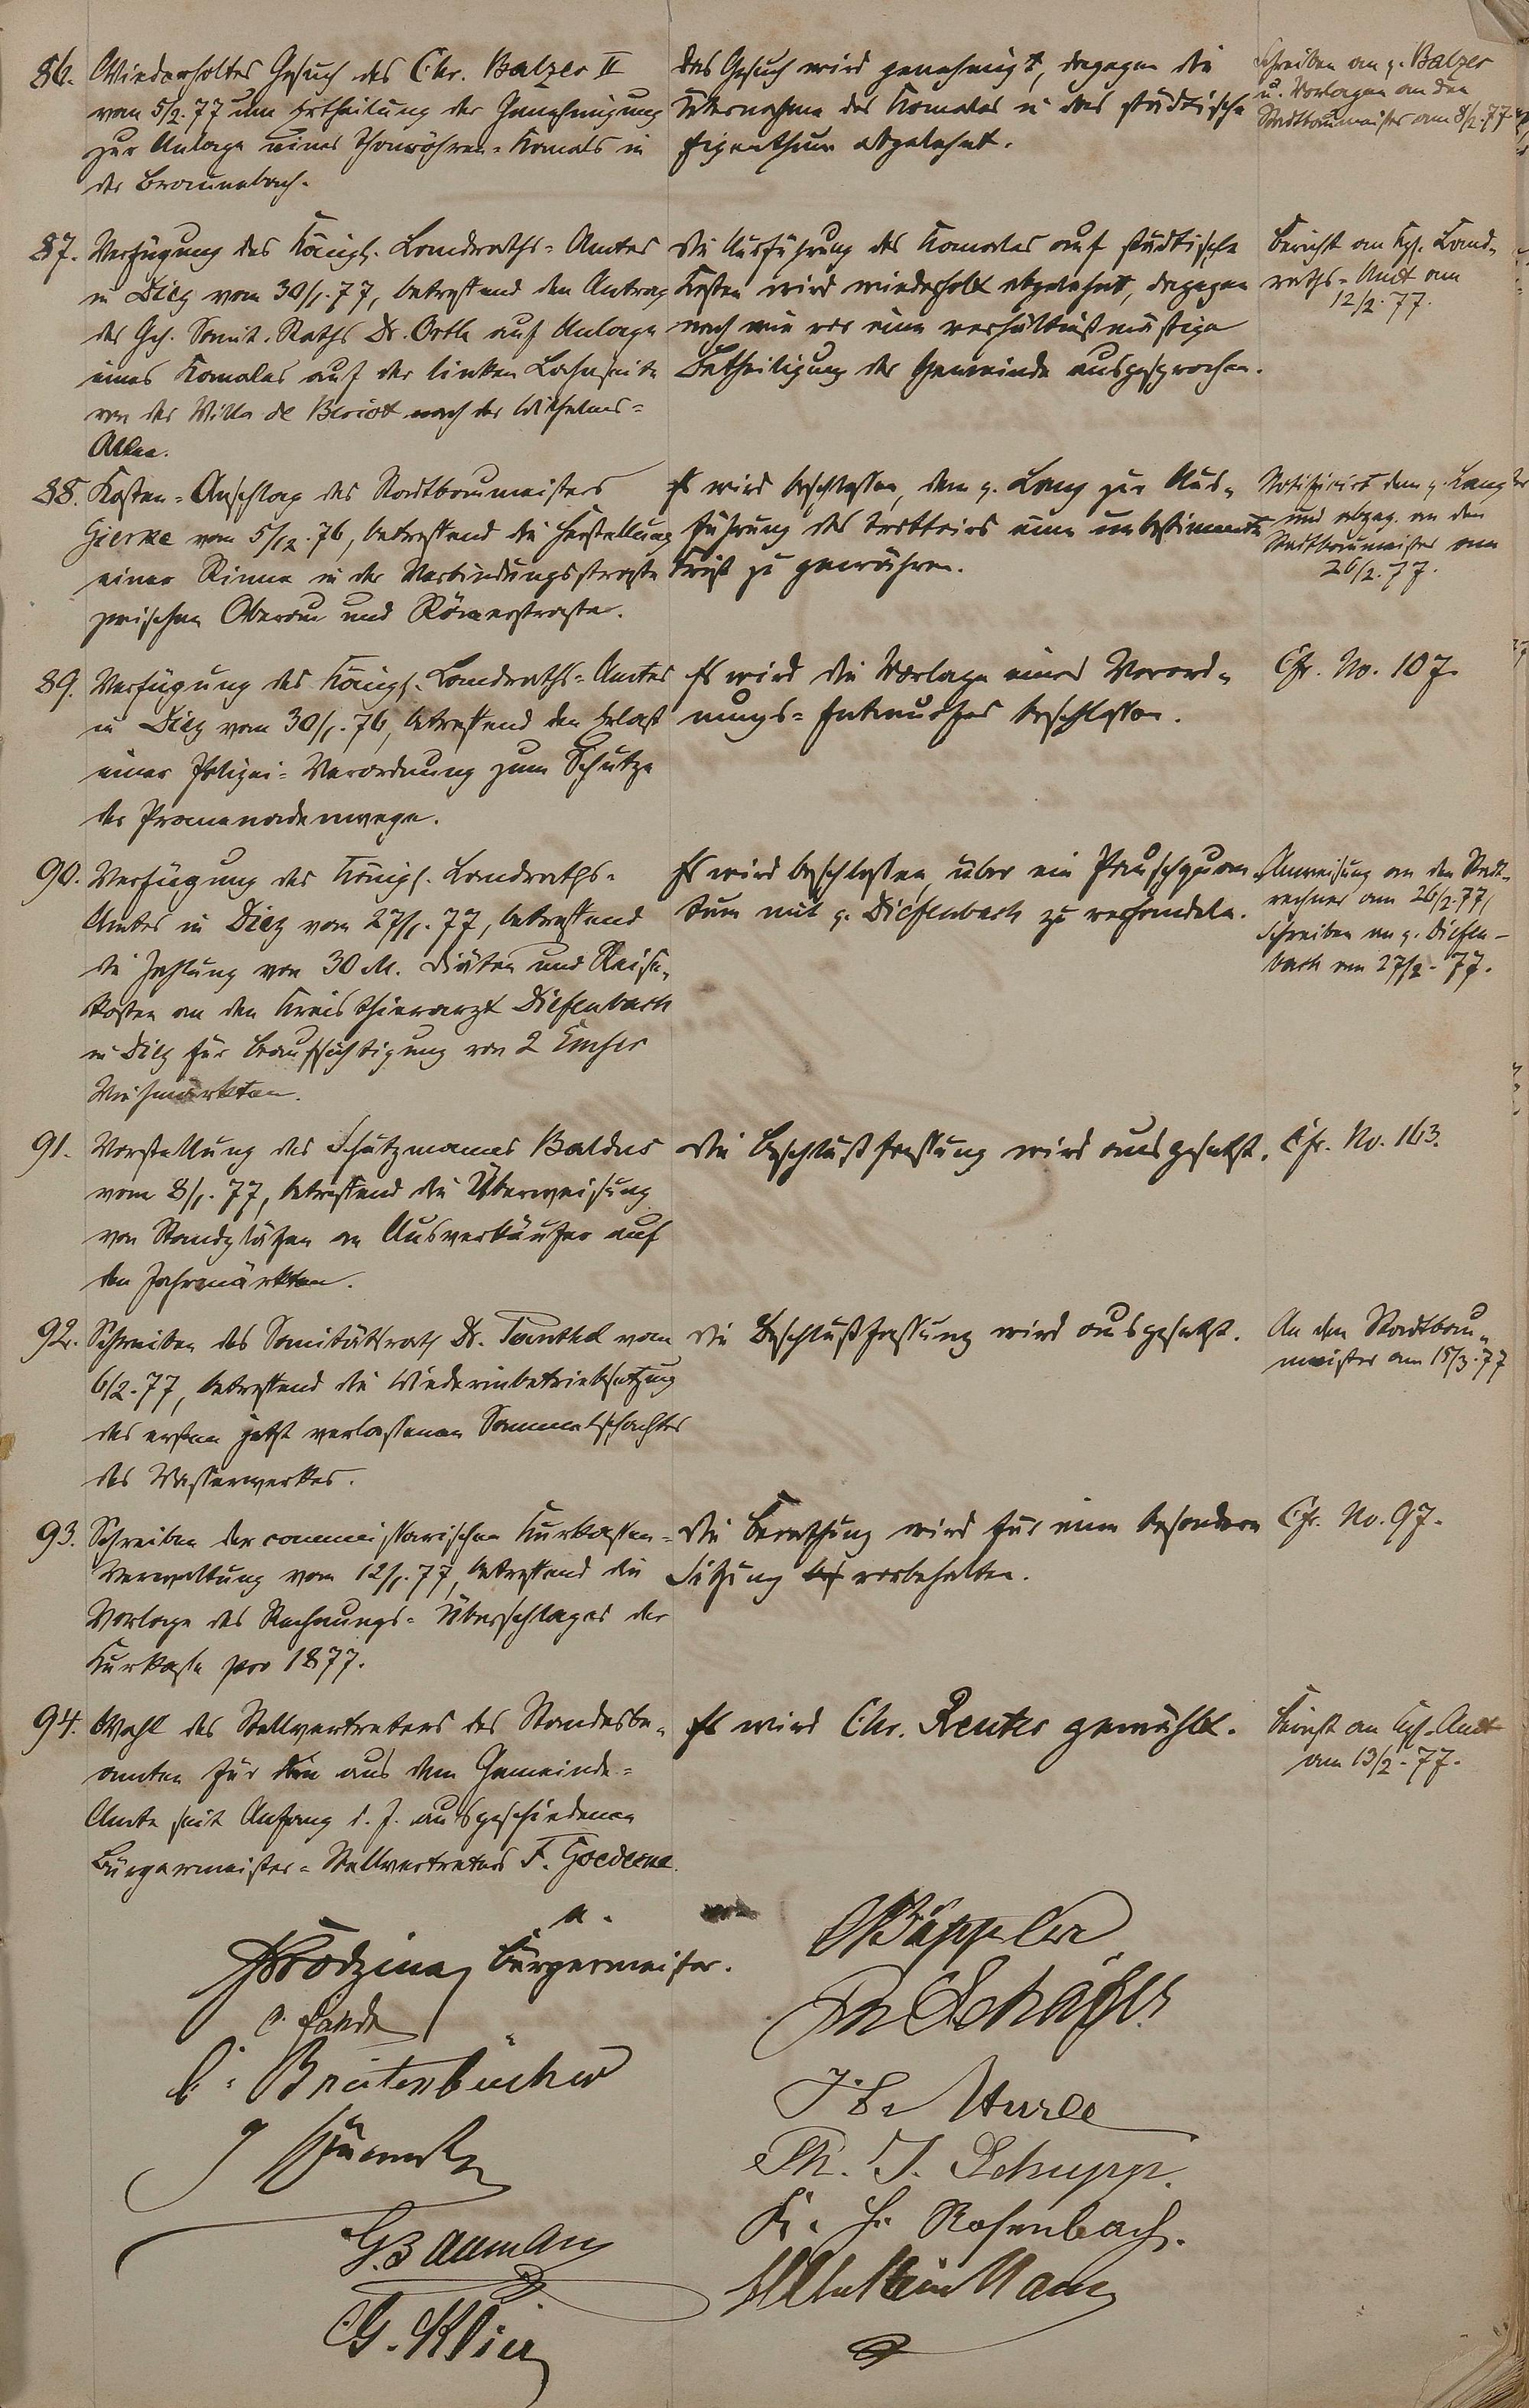 86. Wiederholtes Gesuch des Chr. Balzer II
vom 5/2. 77 um Ertheilung der Genehmigung
zur Anlage eines Thonröhren-Kanals in
der Braunebach.
das Gesuch wird genehmigt, dagegen die
Übernahme des Kanales in das städtische
Eigenthum abgelehnt.
Schreiben an H. Balzer
u. Vorlagen an den
Stadtbaumeister am 8/2. 77
87. Verfügung des Königl. Landraths-Amtes
in Diez vom 30/1. 77, betreffend den Antrag
des Geh. Sanit. Raths Dr. Orth auf Anlage
eines Kanales auf der linken Lahnseite
von der Villa de Beriot nach der Wilhelms-
Allee.
die Ausführung des Kanales auf städtische
Kosten wird wiederholt abgelehnt, dagegen
nach wie vor eine verhältnißmäßige
Betheiligung der Gemeinde ausgesprochen.
Bericht an Kgl. Land-
raths-Amt am
12/2. 77.
88. Kosten-Anschlag des Stadtbaumeisters
Gierke vom 5/12. 76, betreffend die Herstellung
einer Rinne in der Verbindungsstraße
zwischen Oberau und Römerstraße.
Es wird beschlossen, dem H. Lang zur Aus-
führung des Trottoirs eine unbestimmte
Frist zu gewähren.
Notifizirt dem H. Lang
und abgeg. an den
Stadtbaumeister am
26/2. 77.
89. Verfügung des Königl. Landraths-Amtes
in Diez vom 30/1. 76, betreffend den Erlaß
einer Polizei-Verordnung zum Schutze
der Promenadenwege.
Es wird die Vorlage eines Verord-
nungs-Entwurfes beschlossen.
Cfr. No. 107.
90. Verfügung des Königl. Landraths-
Amtes in Diez vom 27/1. 77, betreffend
die Zahlung von 30 M. Diäten und Reise-
kosten an den Kreisthierarzt Diefenbach
in Diez für Beaufsichtigung von 2 Emser
Viehmärkten.
Es wird beschlossen, über ein Pauschquan-
tum mit H. Diefenbach zu verhandeln.
Anweisung an den Stadt-
rechner am 26/2. 77,
Schreiben an H. Diefen-
bach am 27/2. 77.
91. Vorstellung des Schutzmannes Baldus
vom 8/1. 77, betreffend die Überweisung
von Standplätzen an Ausverkäufer auf
den Jahrmärkten.
Die Beschlußfassung wird ausgesetzt.
Cfr. No. 163.
92. Schreiben des Sanitätsrath Dr. Panthel vom
6/2. 77, betreffend die Wiederinbetriebsetzung
des ersten jetzt verlassenen Sammelschachtes
des Wasserwerkes.
Die Beschlußfassung wird ausgesetzt.
An den Stadtbau-
meister am 15/3. 77
93. Schreiben der commissarischen Kurkassen-
Verwaltung vom 12/1. 77, betreffend die
Vorlage des Rechnungs-Überschlages der
Kurkasse pro 1877.
Die Berathung wird für eine besondere
Sitzung vorbehalten.
Cfr. No. 97.
94. Wahl des Stellvertreters des Standesbe-
amten für den aus dem Gemeinde-
Amte seit Anfang d. J. ausgeschiedenen
Bürgermeister-Stellvertreters F. Goedecke.
Es wird Chr. Reuter gewählt.
Bericht an Kgl. Amt
am 13/2. 77.
Bürgermeister.
C. Breitenbücher
G. Bauman
G. Klein
Käppler
Schäfer
Ph. J. Schupp.
K. H. Rosenbach.